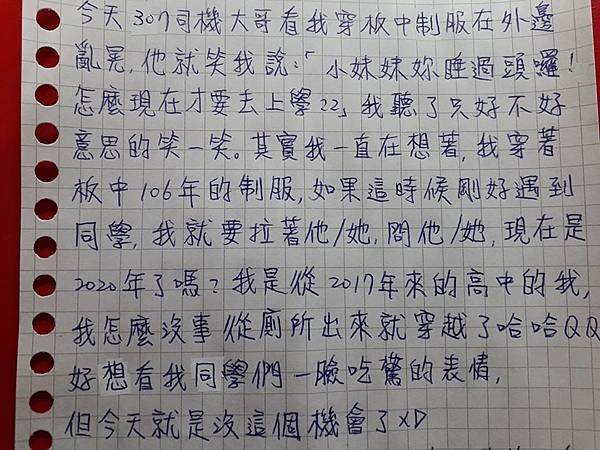 今天307司機大哥看我穿板中制服在外邊
亂晃,他就笑我說:「小妹妹妳睡過頭囉!
怎麼現在才要去上學??」我聽了只好不好
意思的笑一笑。其實我一直在想著,我穿著
板中106年的制服,如果這時候剛好遇到
同學,我就要拉著他/她,問他/她,現在是
2020年了嗎?我是從2017年來的高中的我,
我怎麼沒事從廁所出來就穿越了哈哈QQ
好想看我同學們一臉吃驚的表情,
但今天就是沒這個機會了XD